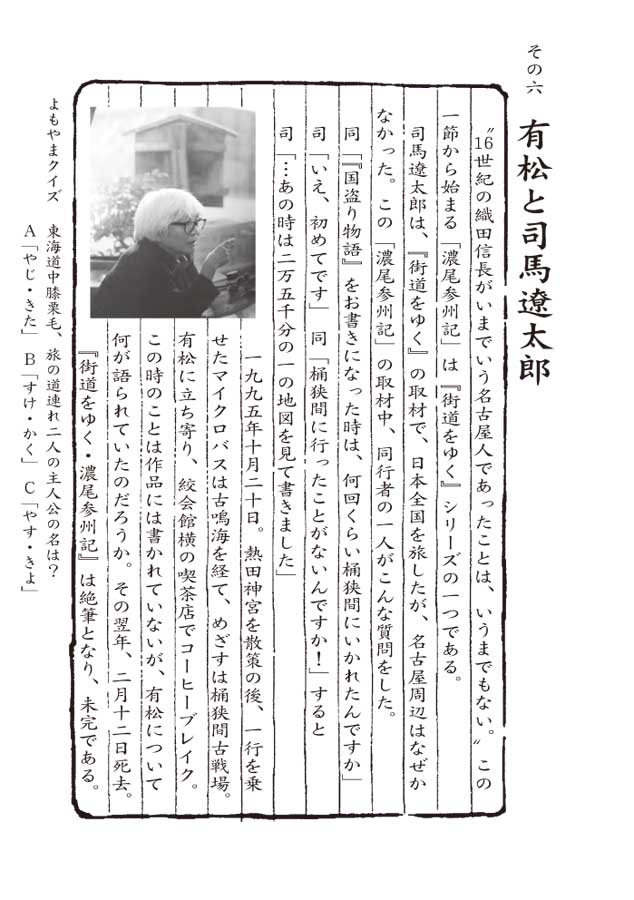 その六
有松と司馬遼太郎
〝16世紀の織田信長がいまでいう名古屋人であったことは、いうまでもない。〟この
一節から始まる「濃尾参州記」は『街道をゆく』シリーズの一つである。
司馬遼太郎は、『街道をゆく』の取材で、日本全国を旅したが、名古屋周辺はなぜか
なかった。この「濃尾参州記」の取材中、同行者の一人がこんな質問をした。
同「『国盗り物語』をお書きになった時は、何回くらい桶狭間にいかれたんですか」
司「いえ、初めてです」同「桶狭間に行ったことがないんですか！」すると
司「…あの時は二万五千分の一の地図を見て書きました」
一九九五年十月二十日。熱田神宮を散策の後、一行を乗
せたマイクロバスは古鳴海を経て、めざすは桶狭間古戦場。
有松に立ち寄り、絞会館横の喫茶店でコーヒーブレイク。
この時のことは作品には書かれていないが、有松について
何が語られていたのだろうか。その翌年、二月十二日死去。
『街道をゆく・濃尾参州記』は絶筆となり、未完である。
よもやまクイズ　東海道中膝栗毛、旅の道連れ二人の主人公の名は？
A「やじ・きた」　B「すけ・かく」　C「やす・きよ」